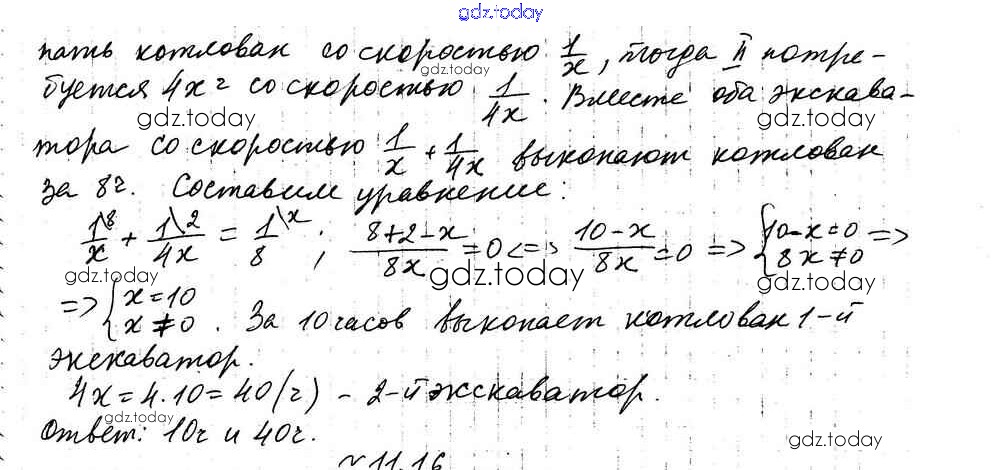 gdz.today
пать котлован со скоростью 1/x, тогда II потре-
gdz.today
буется 4x г со скоростью 1/4x. Вместе оба экскава-
gdz.today gdz.today
тора со скоростью 1/x + 1/4x выкопают котлован
за 8г. Составим уравнение:
1\8/x + 1\2/4x = 1\x/8; (8+2-x)/8x = 0 <=> (10-x)/8x = 0 => { 10-x=0 8x≠0 =>
gdz.today gdz.today gdz.today
=> { x=10 x≠0. За 10 часов выкопает котлован 1-й
экскаватор.
4x=4.10=40(г) - 2-й экскаватор.
gdz.today
Ответ: 10г и 40г.
gdz.today
N 11.16